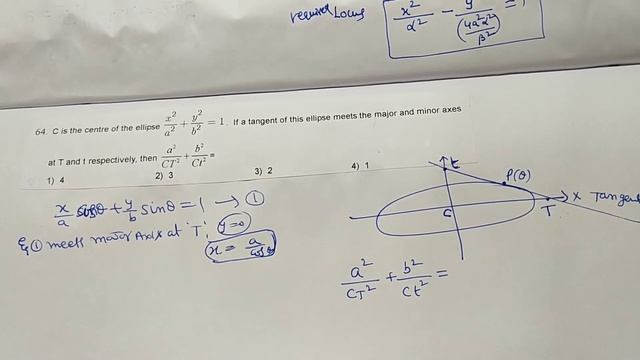 required Locus x²/α² - y²/(4a²α²/β²) = 1
64. C is the centre of the ellipse x²/a² + y²/b² = 1. If a tangent of this ellipse meets the major and minor axes
at T and t respectively, then a²/CT² + b²/Ct² =
1) 4 2) 3 3) 2 4) 1
x/a cosθ + y/b sinθ = 1 → ①
① meets major Axix at 'T', y=0
x = a/cosθ
t
P(θ)
C
T
X
Tangent
a²/CT² + b²/Ct² =